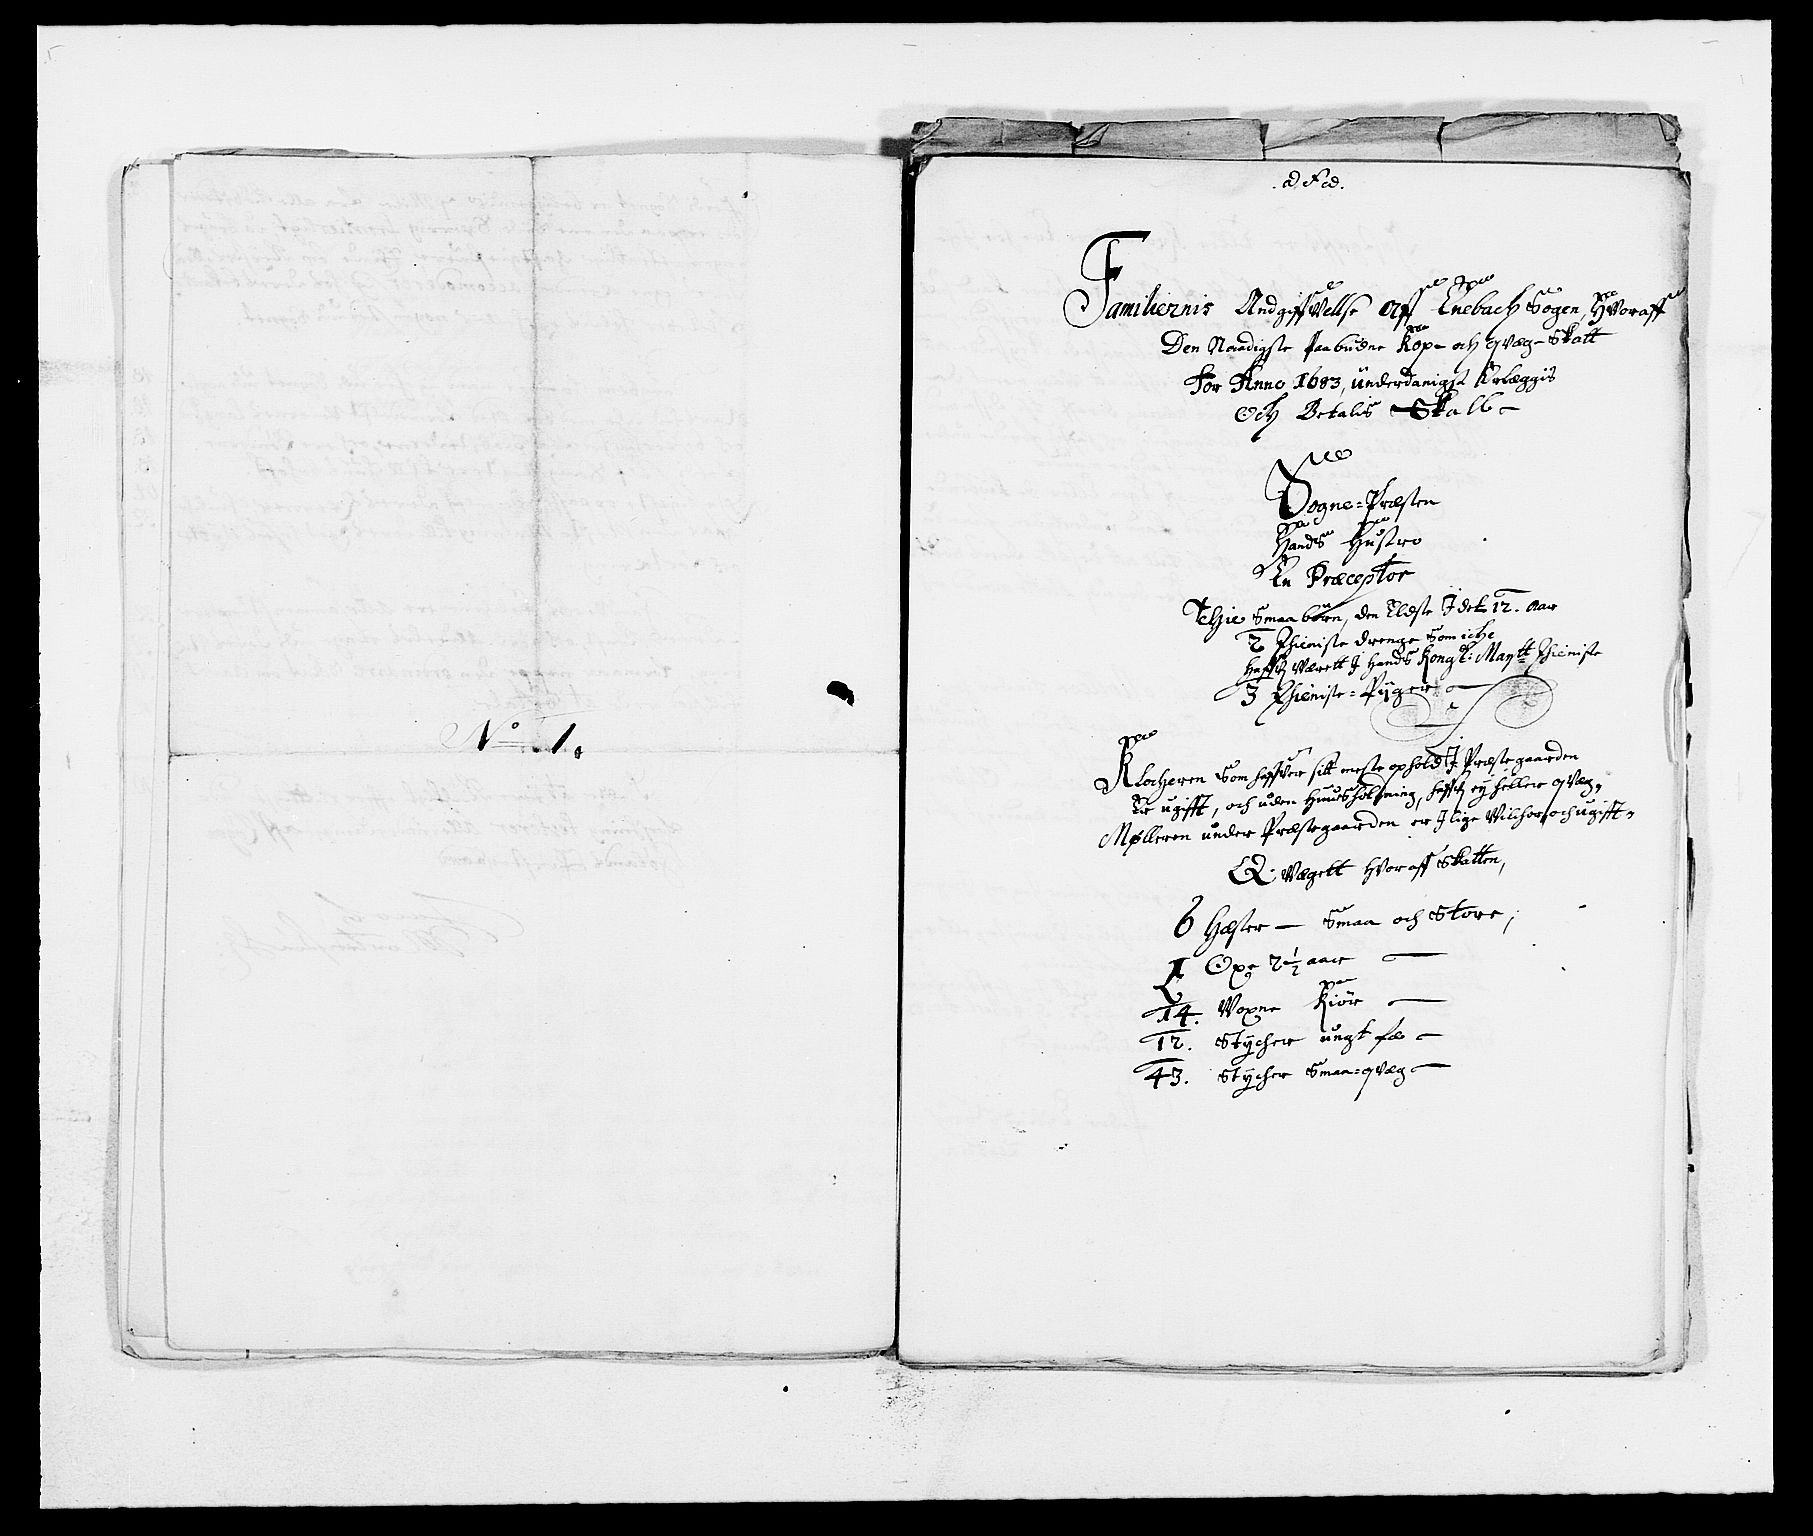 No 1.
Familiernis Andgiffvellse Aff Enebach Sogen, Hvoraff
Den Naadigste paabudne Kop- och qvæg-Skatt
for Anno 1683, underdanigst Erlæggis
Och Betalis Skall
Sogne-Præsten
Hands Hustro
En Præceptor
Smaa börn, den Eldste J det 12. aar
2 Thieniste drenge Som iche
haffr Værett J Hands Kongl: Maytt Thieniste
3 Thieniste-Pyger
Klocheren Som haffver sitt meste ophold J Præstegaarden
Er ugifft, och uden Huusholdning, haffr ey heller qvæg,
Mølleren under Præstegaarden er J lige Vilchor, och ugifft
Qvægett hvoraff Skatten,
6 Hæster — Smaa och Store,
1 Oxe 2 1/2 aar —
14. Voxne Kiör —
12. Stycher ungt fæ —
43. Stycher Smaa-qvæg —